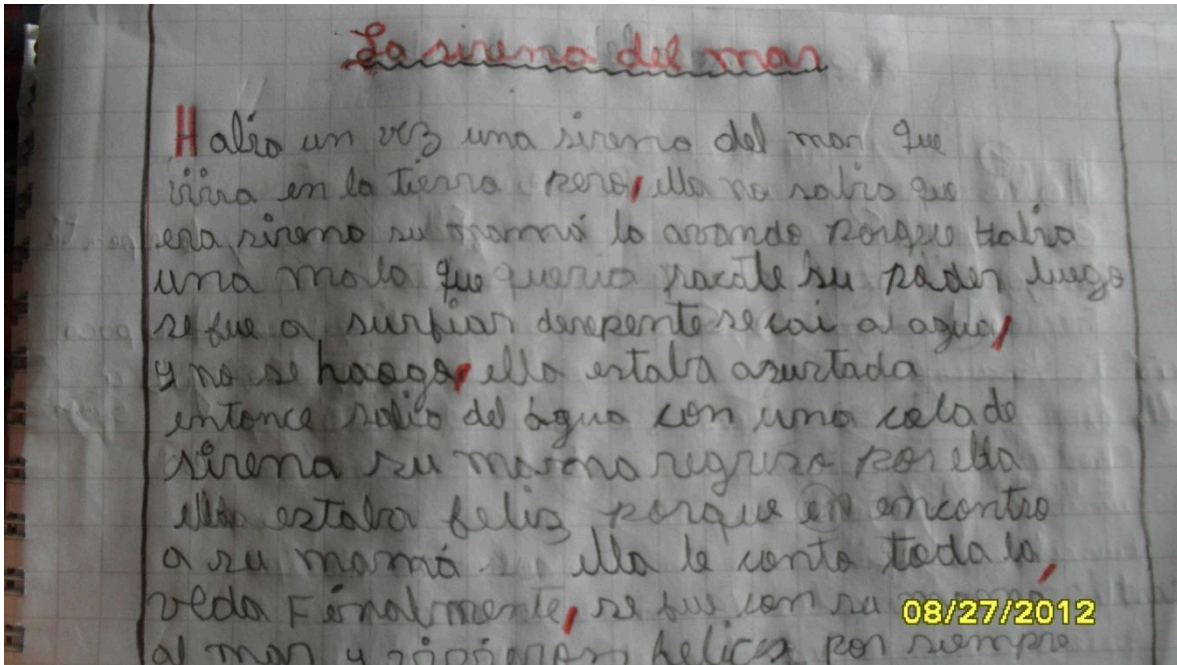 La sirena del mar
Habia un vez una sirena del mar que
viva en la tierra pero, ella no sabia que
era sirena su mamá la avando porque habia
una mala que queria sacale su poder luego
se fue a surfiar derepente se cai al agua,
y no se haogo, ella estaba asustada
entonce salio del água con una cola de
sirena su mamá regreso por ella
ella estaba feliz porque en encontro
a su mamá ella le conto toda la,
veda Finalmente, se fue con su
08/27/2012
al mar y vivieron felices por siempre